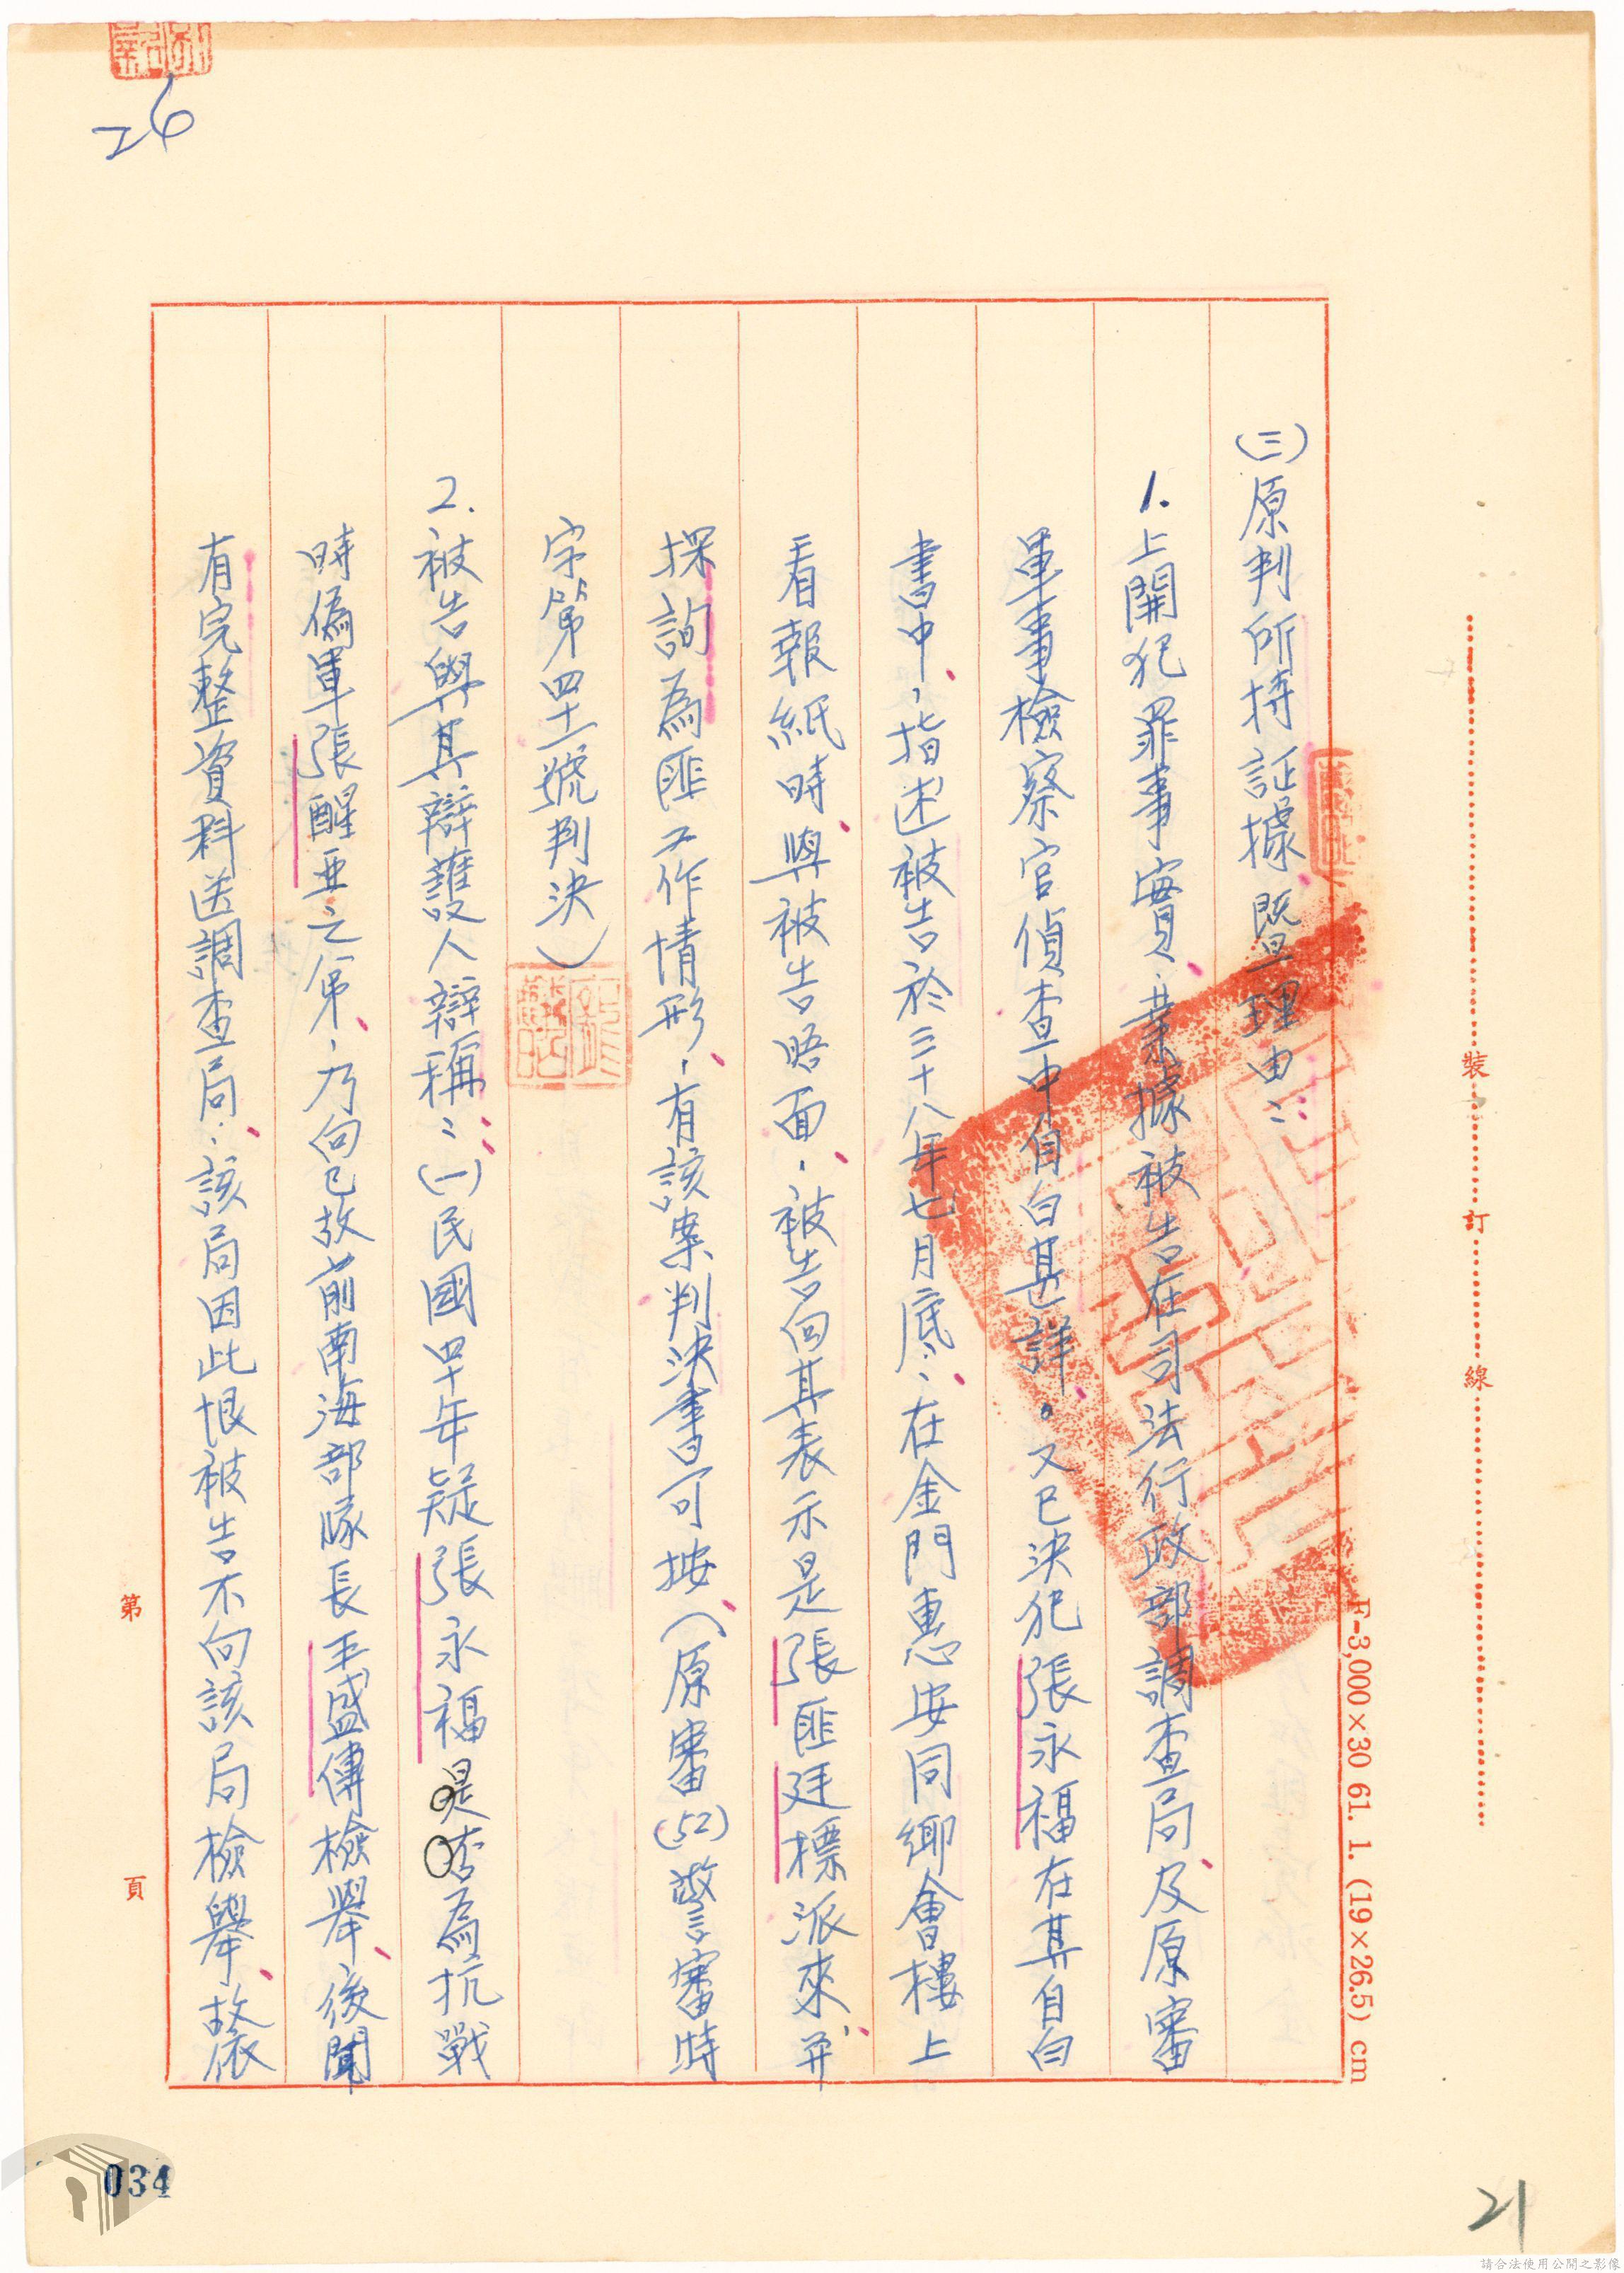 (三)原判所持証據暨理由：
1.上開犯罪事實，業據被告在司法行政部調查局及原審
軍事檢察官偵查中自白甚詳。又已決犯張永福在其自白
書中，指述被告於三十八年七月底，在金門惠安同鄉會樓上
看報紙時與被告晤面，被告向其表示是張匪廷標派來，并
探詢為匪工作情形，有該案判決書可按（原審(52)警審特
字第四十一號判決）
2.被告與其辯護人辯稱：(一)民國四十年疑張永福是否為抗戰
時偽軍張醒亞之弟，乃向已故前南海部隊長王盛傳檢舉，後聞
有完整資料送調查局，該局因此恨被告不向該局檢舉，故依
26
21
034
裝
訂
線
第
頁
F-3,000×30 61. 1. (19×26.5) cm
請合法使用公開之影像